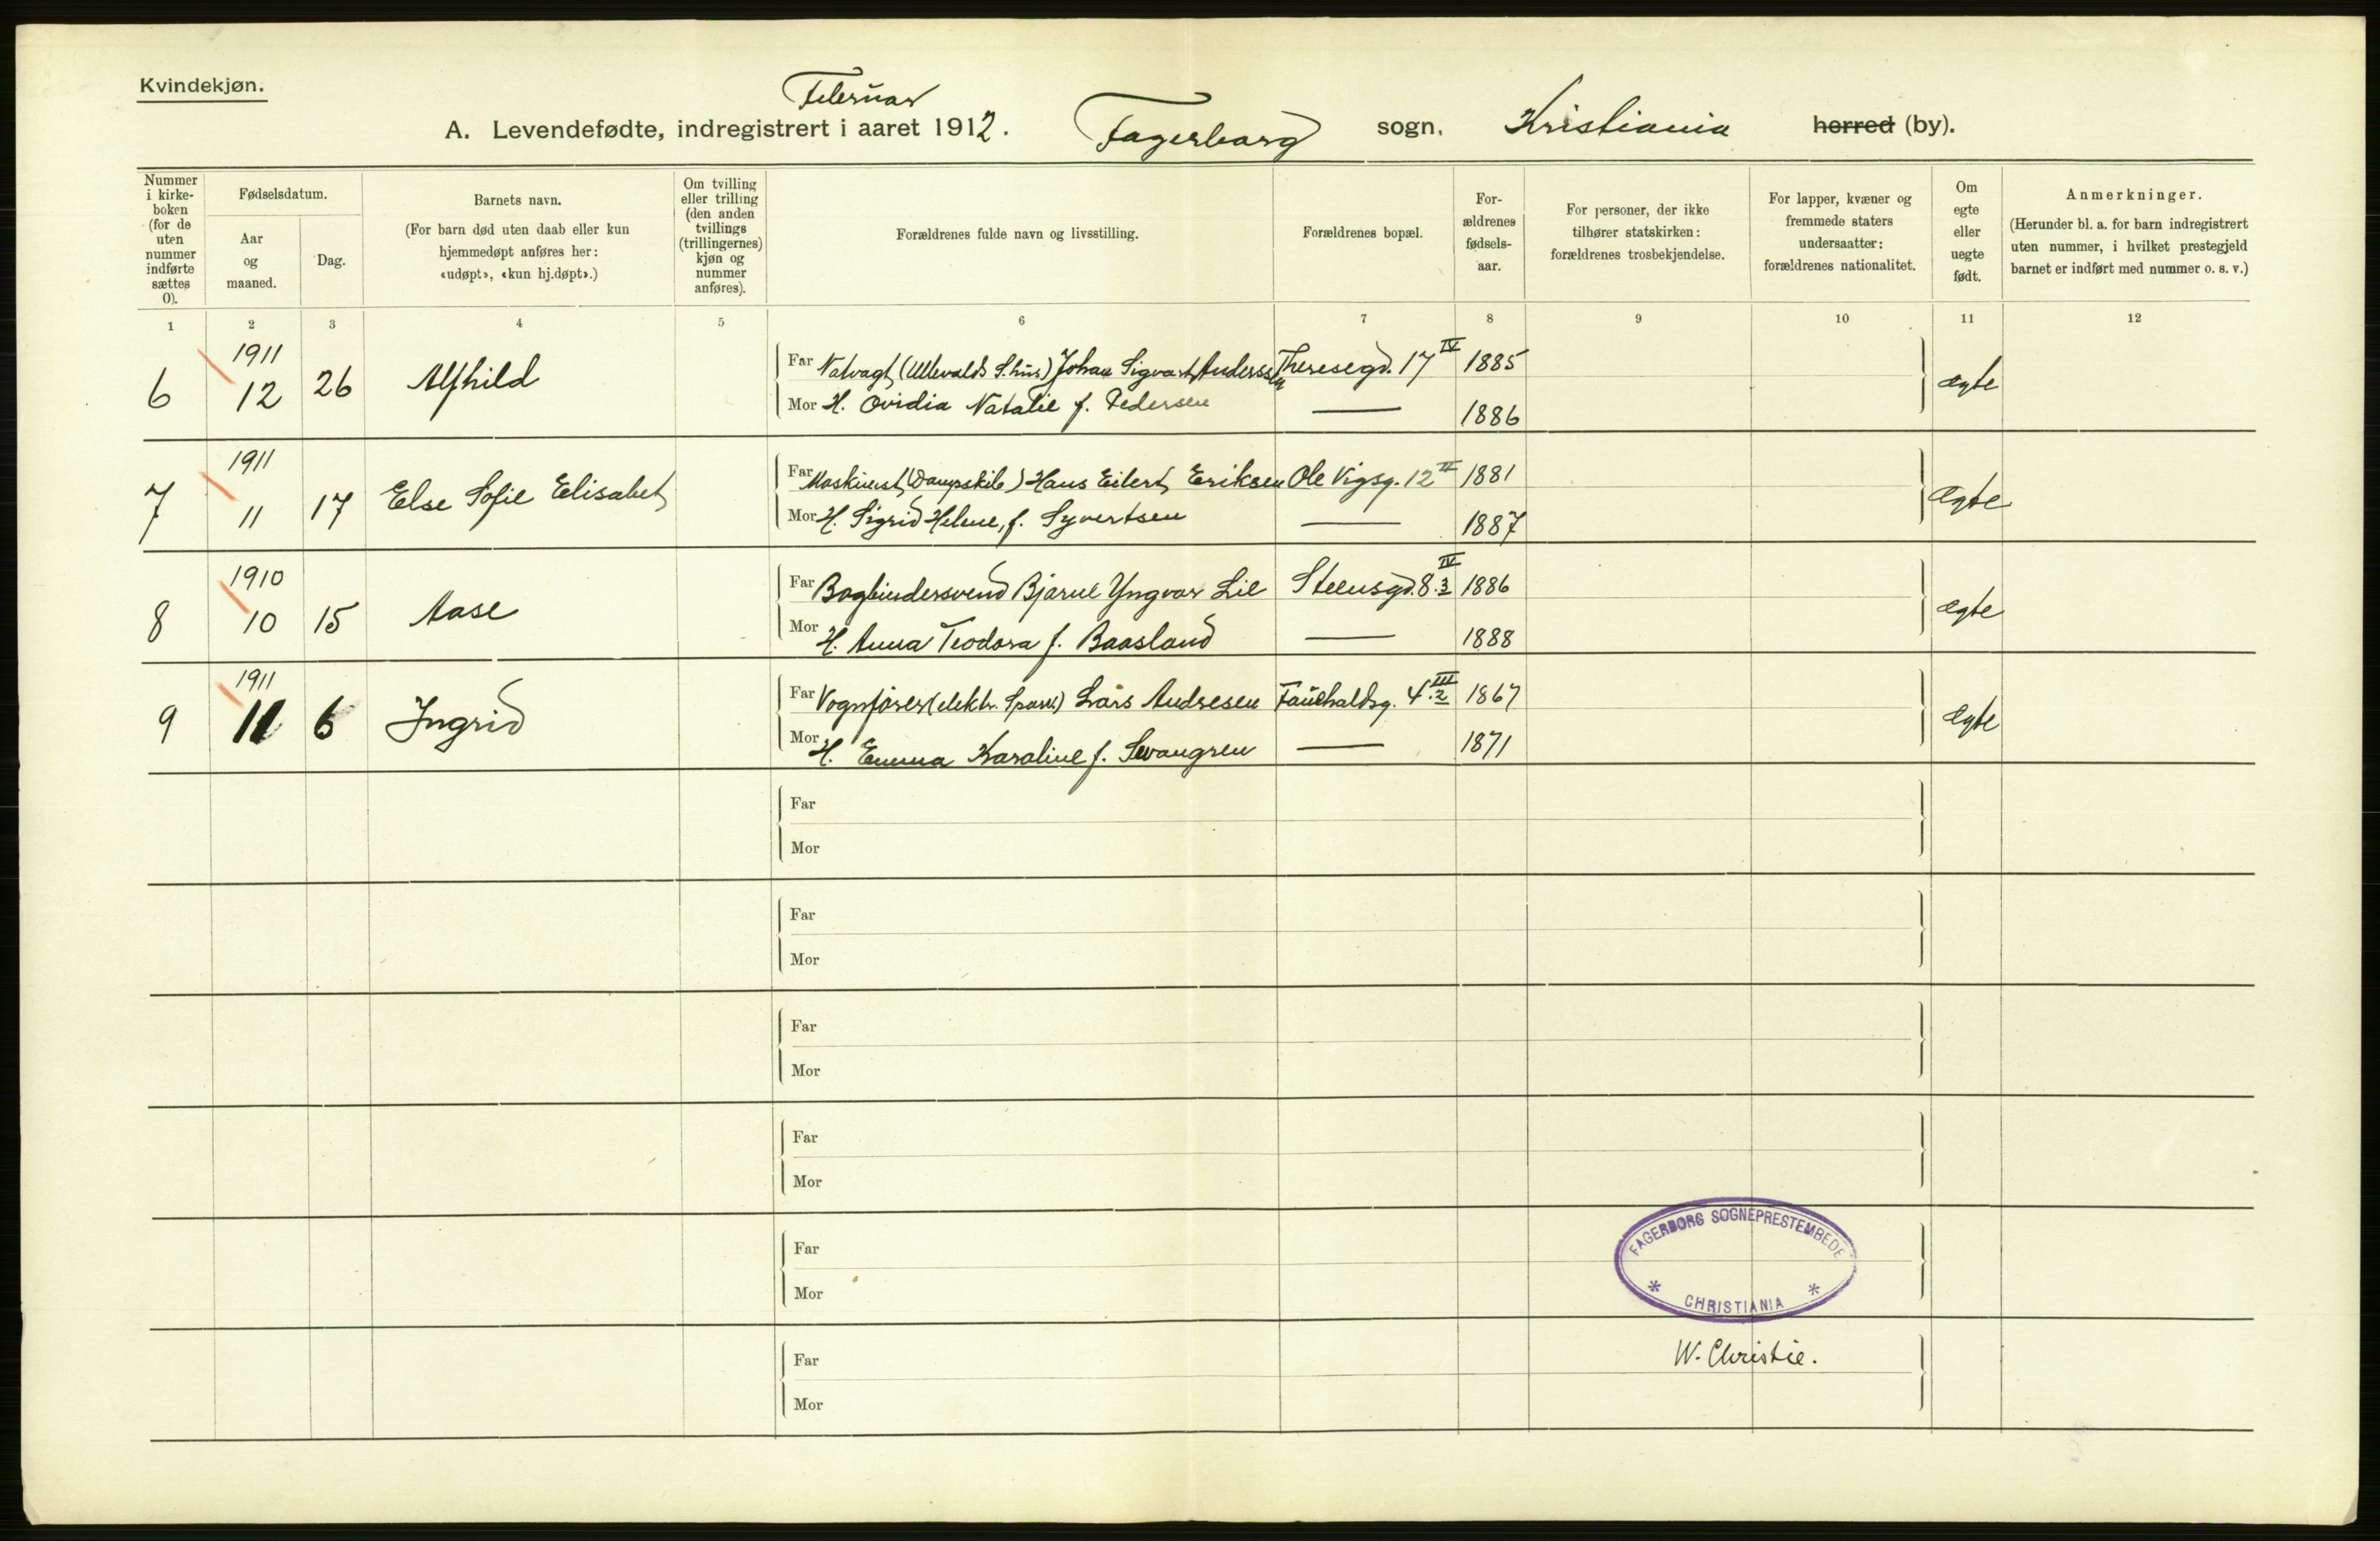 Kvindekjøn.
Februar
A. Levendefødte, indregistrert i aaret 1912. Fagerborg sogn, Kristiania herred (by).
Nummer i kirke-boken (for de uten nummer indførte sættes 0).
Fødselsdatum.
Aar og maaned.
Dag.
Barnets navn.
(For barn død uten daab eller kun hjemmedøpt anføres her: «udøpt», «kun hj.døpt».)
Om tvilling eller trilling (den anden tvillings (trillingernes) kjøn og nummer anføres).
Forældrenes fulde navn og livsstilling.
Forældrenes bopæl.
For-ældrenes fødsels-aar.
For personer, der ikke tilhører statskirken: forældrenes trosbekjendelse.
For lapper, kvæner og fremmede staters undersaatter: forældrenes nationalitet.
Om egte eller uegte født.
Anmerkninger.
(Herunder bl. a. for barn indregistrert uten nummer, i hvilket prestegjeld barnet er indført med nummer o. s. v.)
1 2 3 4 5 6 7 8 9 10 11 12
6 1911 12 26 Alfhild Far Natvagt (Ullevålds S.hus) Johan Sigvart Anderssen Theresegd. 17 IV 1885 ægte
Mor H. Ovidia Natalie f. Pedersen — 1886
7 1911 11 17 Else Sofie Elisabet Far Maskinist (Dampskib) Hans Eilert Eriksen Ole Vigsg. 12 II 1881 Ægte
Mor H. Sigrid Helene, f. Syvertsen — 1887
8 1910 10 15 Aase Far Bogbindersvend Bjarne Yngvar Lie Steensgd. 8.3 IV 1886 ægte
Mor H. Anna Teodora f. Baasland — 1888
9 1911 11 6 Ingrid Far Vognfører (elektr. Sporv.) Lars Andresen Fauchaldsg. 4.2 III 1867 Ægte
Mor H. Emma Karoline f. Swangren — 1871
Far
Mor
Far
Mor
Far
Mor
Far
Mor
Far
Mor
Far
Mor
FAGERBORG SOGNEPRESTEMBEDE
* CHRISTIANIA *
W. Christie.